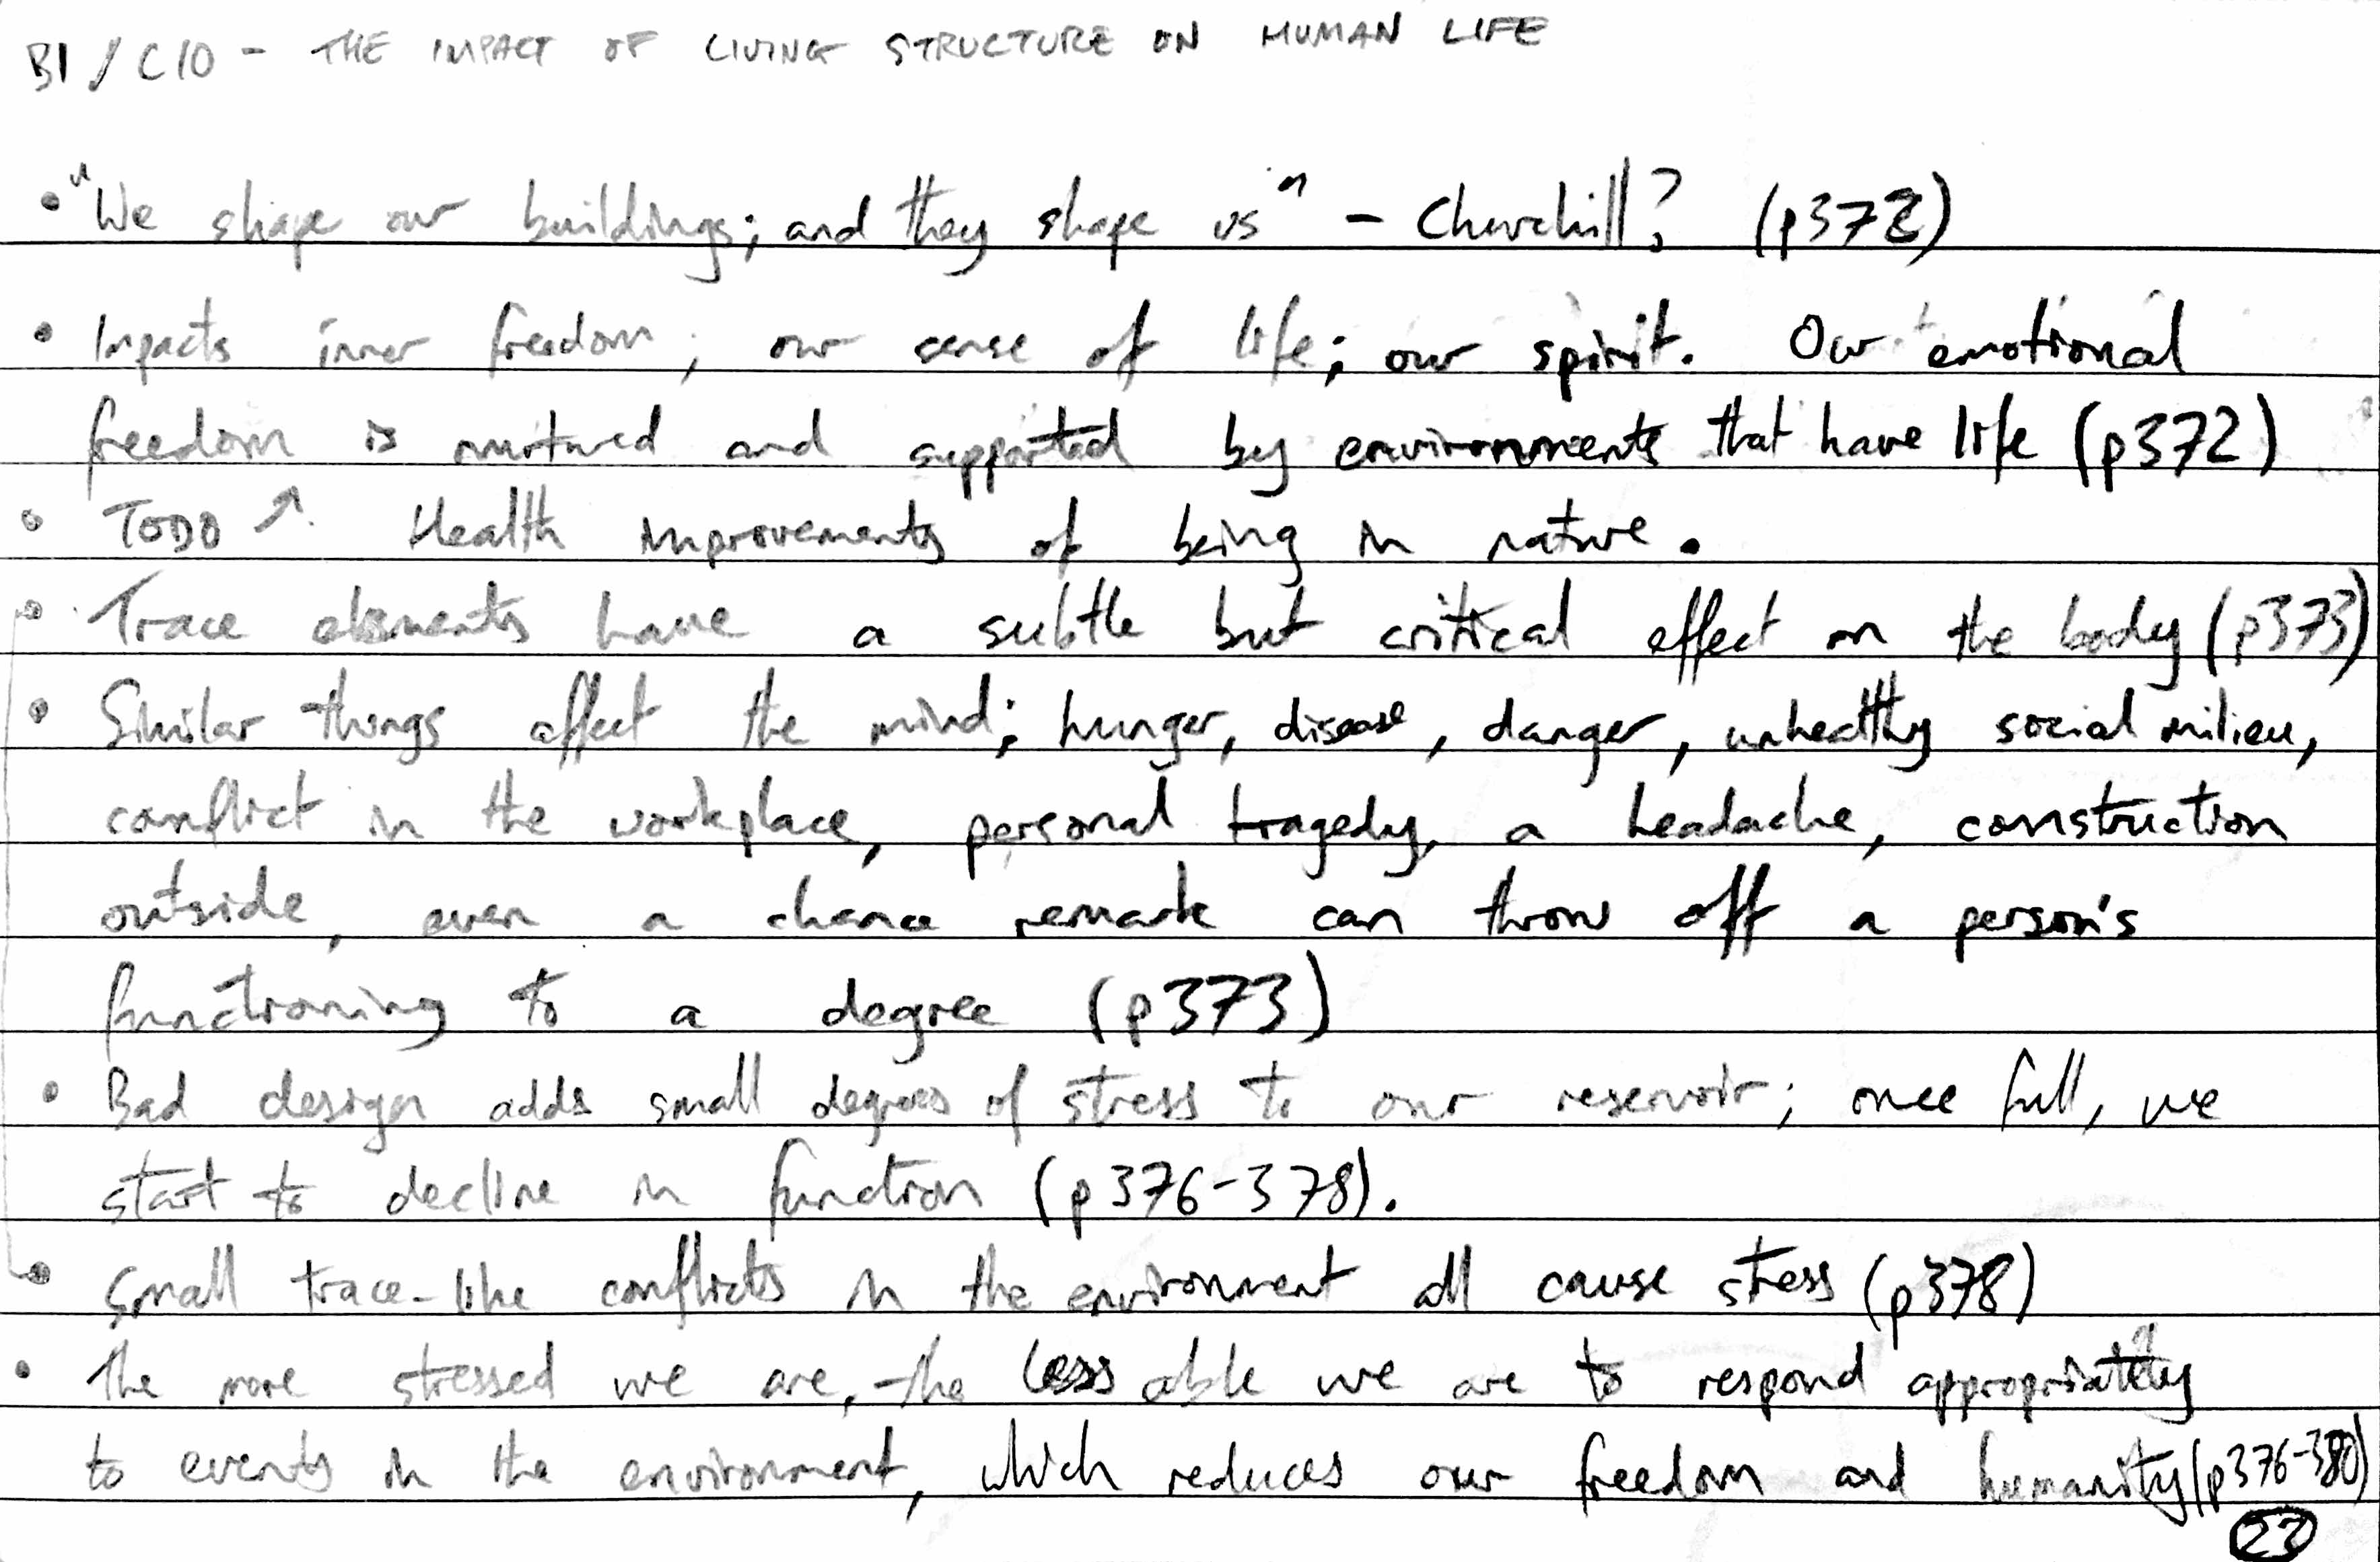 B1 / C10 - THE IMPACT OF LIVING STRUCTURE ON HUMAN LIFE
• "We shape our buildings; and they shape us" - Churchill? (p372)
• Impacts inner freedom; our sense of life; our spirit. Our emotional
freedom is nurtured and supported by environments that have life (p372)
• TODO ↗ Health improvements of being in nature.
• Trace elements have a subtle but critical effect on the body (p373)
• Similar things affect the mind; hunger, disease, danger, unhealthy social milieu,
conflict in the workplace, personal tragedy, a headache, construction
outside, even a chance remark can throw off a person's
functioning to a degree (p373)
• Bad design adds small degrees of stress to our reservoir; once full, we
start to decline in function (p376-378).
• Small trace-like conflicts in the environment all cause stress (p378)
• The more stressed we are, the less able we are to respond appropriately
to events in the environment, which reduces our freedom and humanity (p376-380)